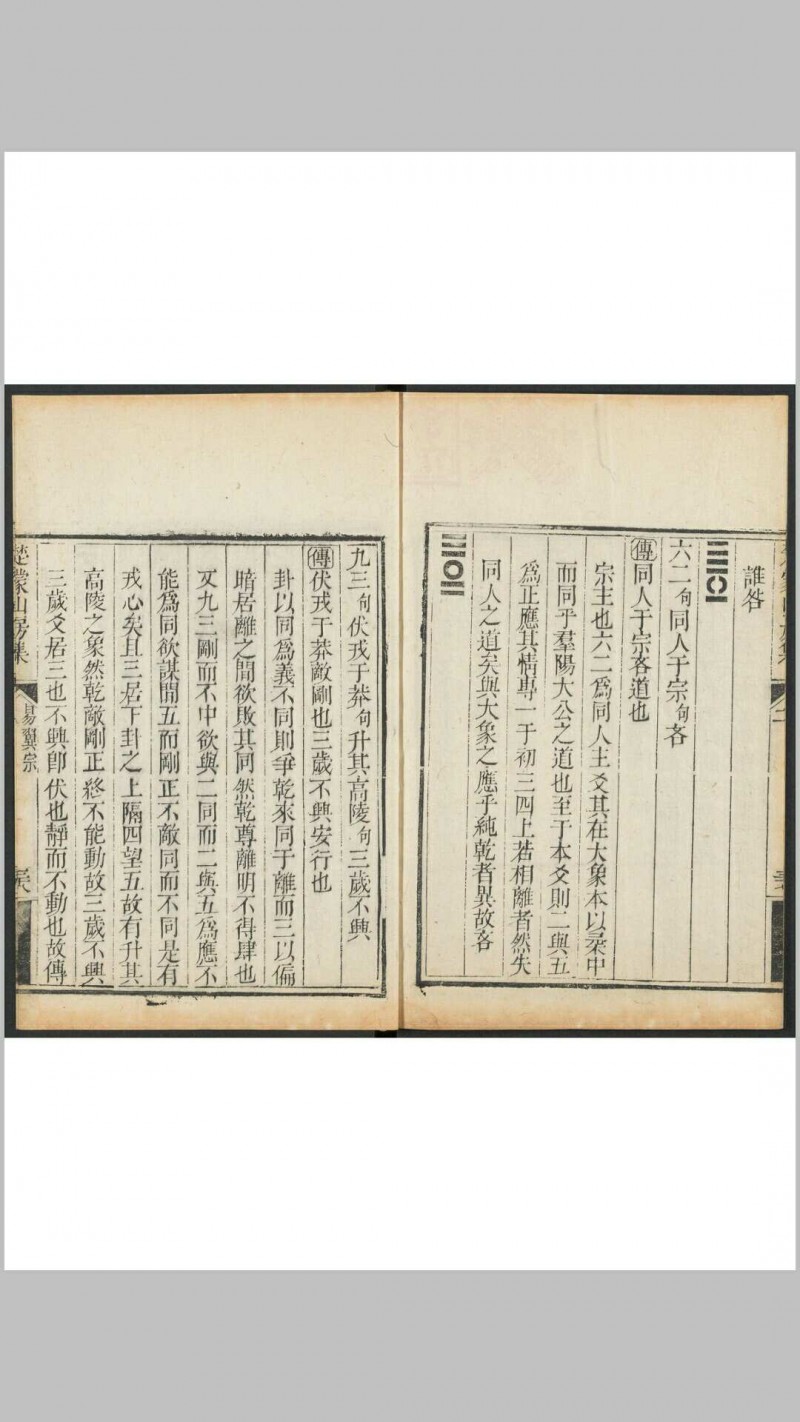 誰咎
六二句同人于宗句吝
傳同人于宗吝道也
宗主也六二爲同人主爻其在大象本以柔中
而同乎羣陽大公之道也至于本爻則二與五
爲正應其情專一于初三四上若相離者然失
同人之道矣與大象之應乎純乾者異故吝
九三句伏戎于莽句升其高陵句三歲不興
傳伏戎于莽敵剛也三歲不興安行也
卦以同爲義不同則爭乾來同于離而三以偏
暗居離之間欲敗其同然乾尊離明不得肆也
又九三剛而不中欲與二同而二與五爲應不
能爲同欲謀間五而剛正不敵同而不同是有
戎心矣且三居下卦之上隔四望五故有升其
高陵之象然乾敵剛正終不能動故三歲不興
三歲爻居三也不興卽伏也靜而不動也故傳
楚蒙山房集
易翼宗